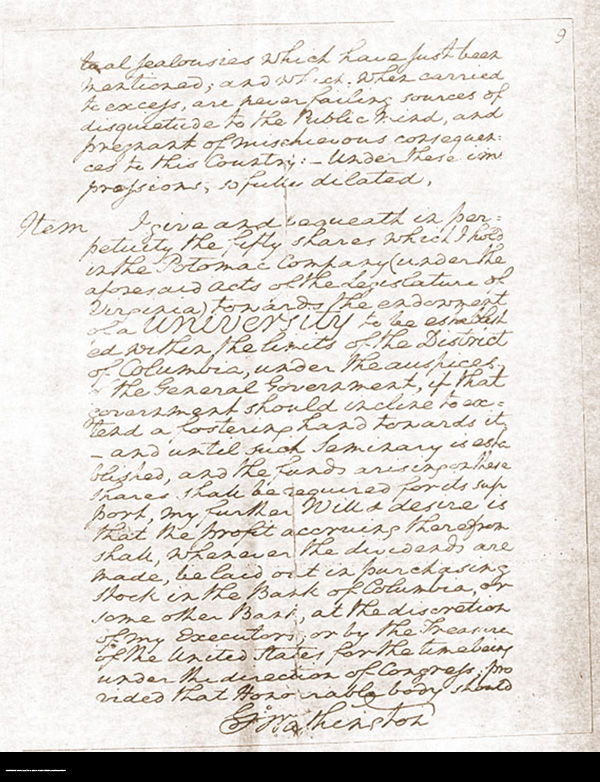 9
tual jealousies which have just been
mentioned; and which when carried
to excess, are never failing sources of
disquietude to the Public mind, and
pregnant of mischievous consequen=
ces to this Country:– Under these im
pressions, so fully dilated,
Item I give and bequeath in per=
petuity the fifty shares which I hold
in the Potomac Company (under the
aforesaid acts of the Legislature of
Virginia) towards the endowment
of a UNIVERSITY to be establish
ed within the limits of the District
of Columbia, under the auspices
of the General Government, if that
government should incline to ex=
tend a fostering hand towards it,
– and until such Seminary is esta
blished, and the funds arising on these
shares shall be required for its sup
port, my further Will & desire is
that the profit accruing therefrom
shall, whenever the dividends are
made, be laid out in purchasing
stock in the Bank of Columbia, or
some other Bank, at the discretion
of my Executors; or by the Treasurer
of the United States for the time being
under the direction of Congress; pro
vided that Honourable body should
Go Washington